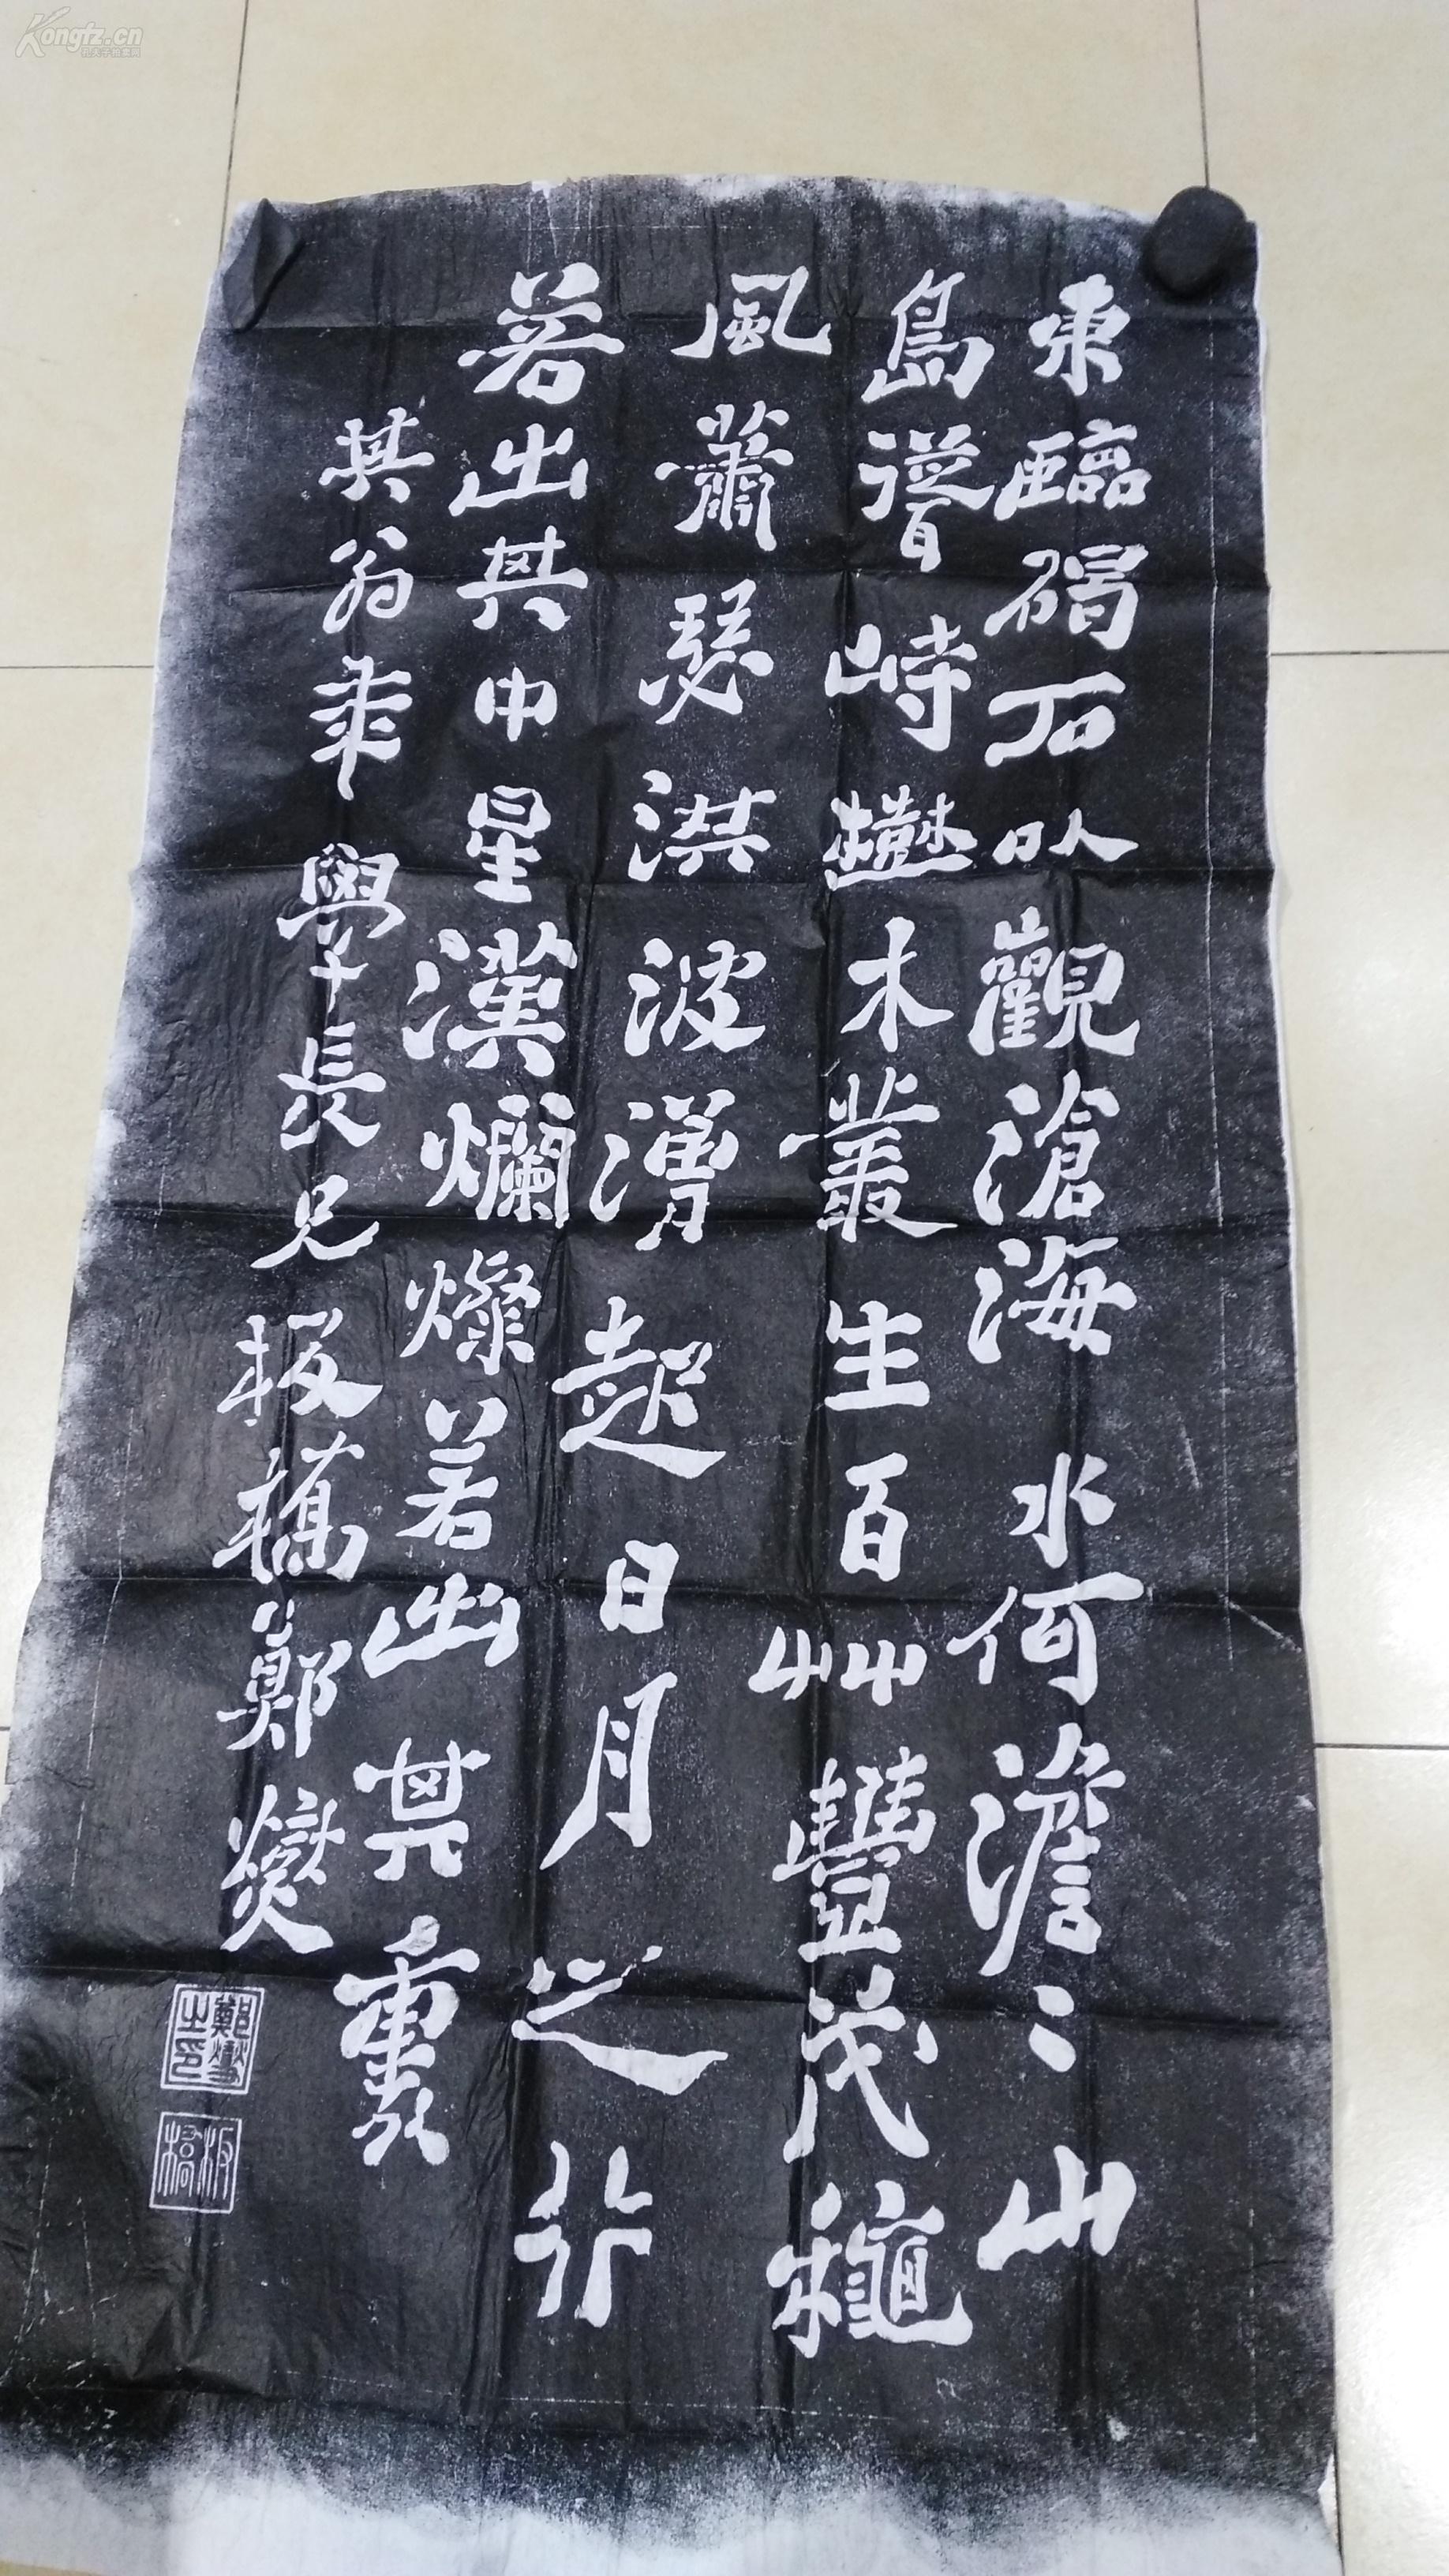 東臨碣石以觀滄海水何澹〻山
島聳峙樹木叢生百艸豐茂穐
風蕭瑟洪波湧起日月之行
若出其中星漢爛燦若出其裏
其翁年學長兄板橋鄭燮
鄭燮之印
板橋
Kongfz.cn
孔夫子拍卖网